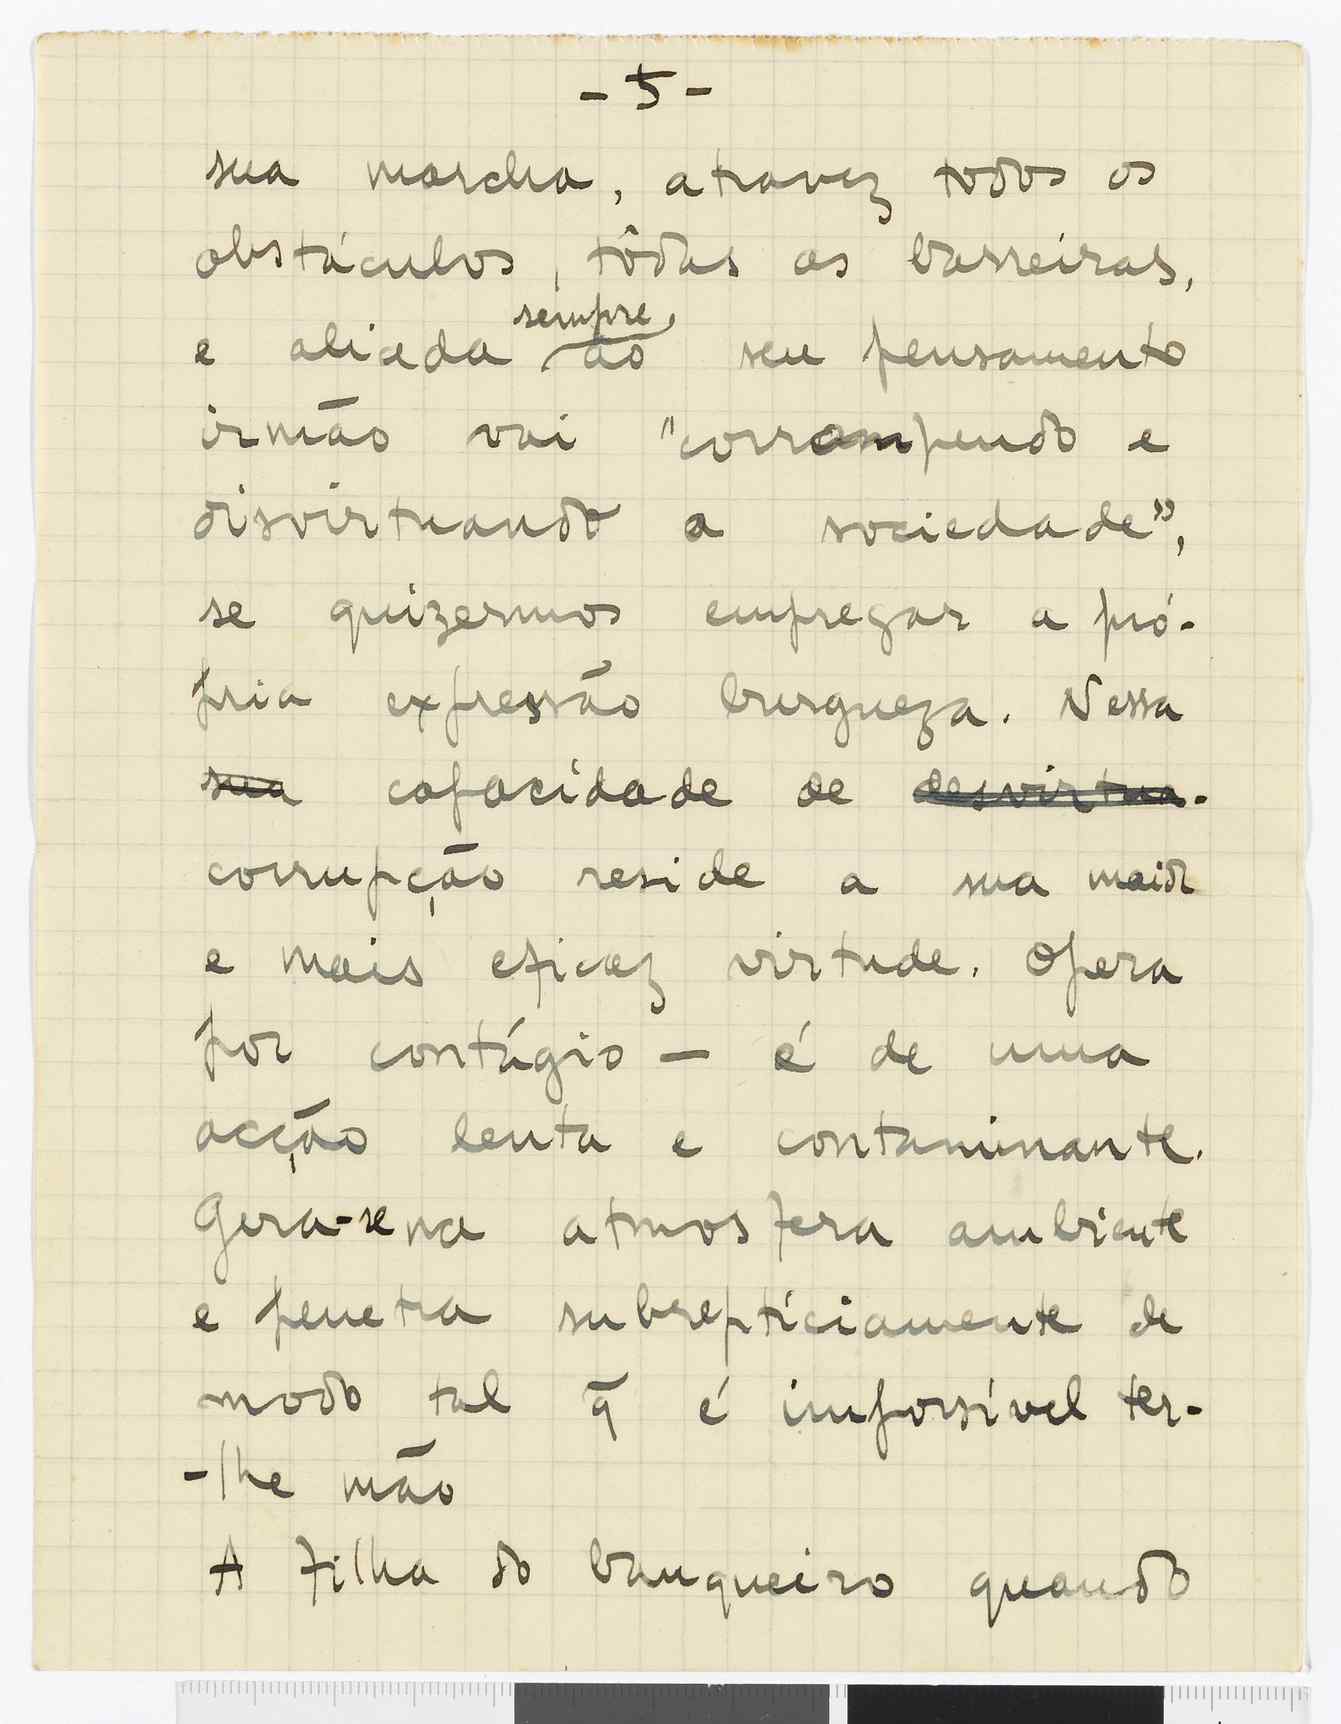 - 5 -
sua marcha, atravez todos os
obstáculos, tôdas as barreiras,
e aliada sempre ao seu pensamento
irmão vai "corrompendo e
disvirtuando a sociedade",
se quizermos empregar a pró-
pria expressão burgueza. Nessa
sua capacidade de desvirtua-
corrupção reside a sua maior
e mais eficaz virtude. Opera
por contágio — é de uma
acção lenta e contaminante.
Gera-se na atmosfera ambiente
e penetra subrepticiamente de
modo tal q̄ é impossível ter-
-lhe mão
A filha do banqueiro quando